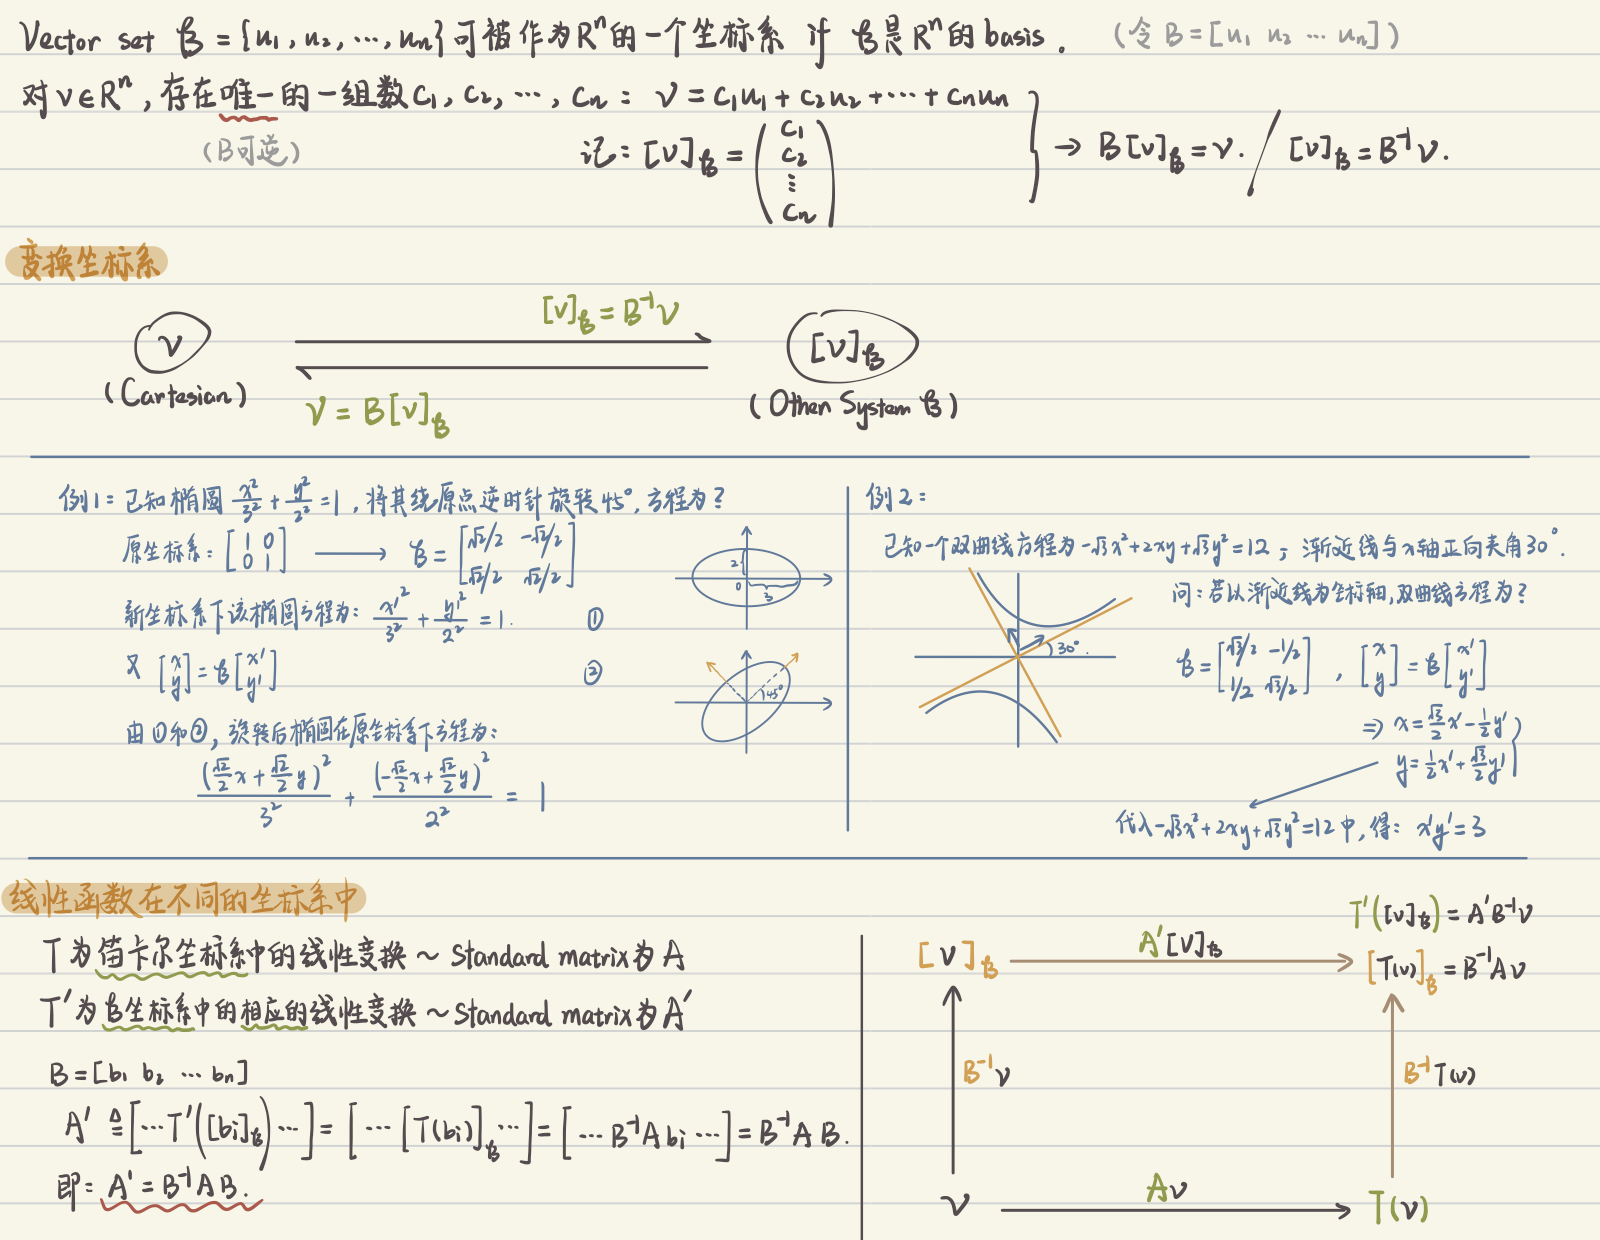 Vector set ℬ = {u₁, u₂, ⋯, uₙ} 可被作为Rⁿ的一个坐标系 if ℬ是Rⁿ的basis. (令B=[u₁ u₂ ⋯ uₙ])
对v∈Rⁿ, 存在唯一的一组数c₁, c₂, ⋯, cₙ: v = c₁u₁ + c₂u₂ + ⋯ + cₙuₙ
(B可逆)
记: [v]ℬ = (c₁ c₂ ⋮ cₙ) → B[v]ℬ = v. / [v]ℬ = B⁻¹v.
变换坐标系
[v]ℬ = B⁻¹v
v
[v]ℬ
(Cartesian)
(Other System ℬ)
v = B[v]ℬ
例1: 已知椭圆 x²/3² + y²/2² = 1, 将其绕原点逆时针旋转45°, 方程为?
原坐标系: [1 0 0 1] → ℬ = [√2/2 -√2/2 √2/2 √2/2]
新坐标系下该椭圆方程为: x'²/3² + y'²/2² = 1. ①
又 [x y] = ℬ[x' y'] ②
由①和②, 旋转后椭圆在原坐标系下方程为:
(√2/2 x + √2/2 y)²/3² + (-√2/2 x + √2/2 y)²/2² = 1
2
0
3
45°
例2:
已知一个双曲线方程为-√3x²+2xy+√3y²=12; 渐近线与x轴正向夹角30°.
问: 若以渐近线为坐标轴, 双曲线方程为?
30°.
ℬ = [√3/2 -1/2 1/2 √3/2], [x y] = ℬ[x' y']
⇒ x = √3/2 x' - 1/2 y'
y = 1/2 x' + √3/2 y'
代入-√3x²+2xy+√3y²=12中, 得: x'y'=3
线性函数在不同的坐标系中
T为笛卡尔坐标系中的线性变换 ~ Standard matrix为A
T'为ℬ坐标系中的相应的线性变换 ~ Standard matrix为A'
B = [b₁ b₂ ⋯ bₙ]
A' ≜ [⋯ T'([bi]ℬ) ⋯] = [⋯ [T(bi)]ℬ ⋯] = [⋯ B⁻¹A bi ⋯] = B⁻¹AB.
即: A' = B⁻¹AB.
T'([v]ℬ) = A'B⁻¹v
[v]ℬ
A'[v]ℬ
[T(v)]ℬ = B⁻¹Av
B⁻¹v
B⁻¹T(v)
v
Av
T(v)